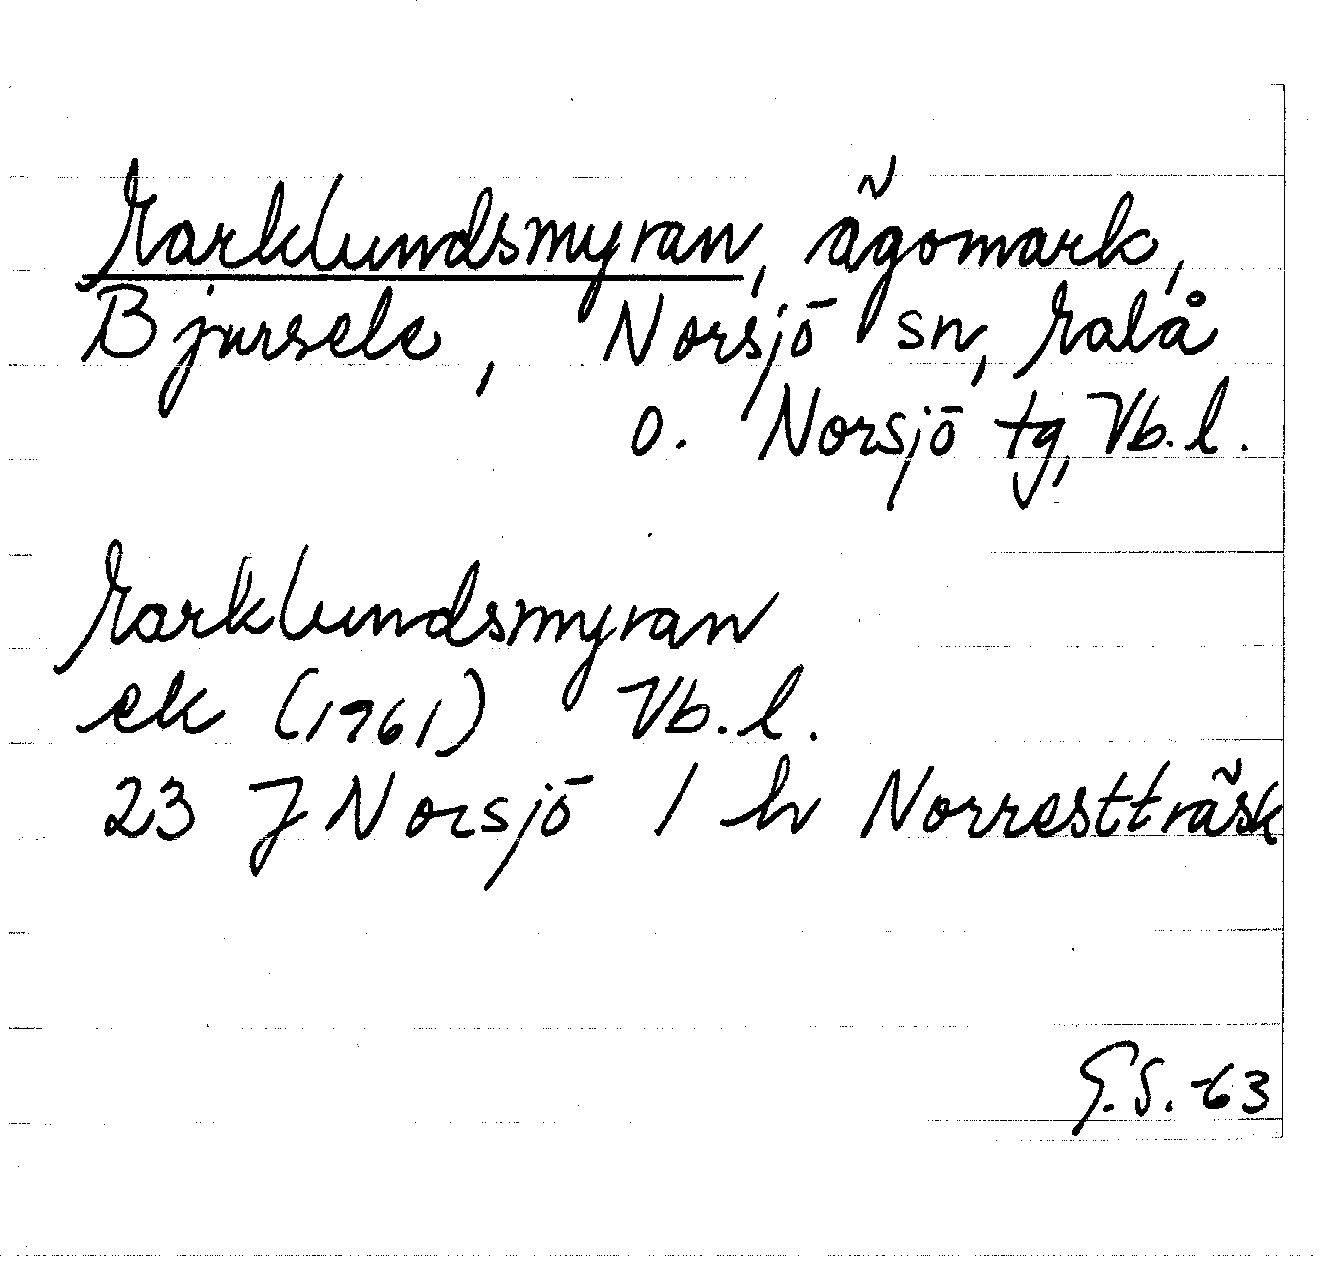 Marklundsmyran, ägomark,
Bjursele, Norsjö sn, Malå
o. Norsjö tg, Vb.l.
Marklundsmyran
ek (1961) Vb.l.
23 J Norsjö / h Norrestträsk
G.S. -63